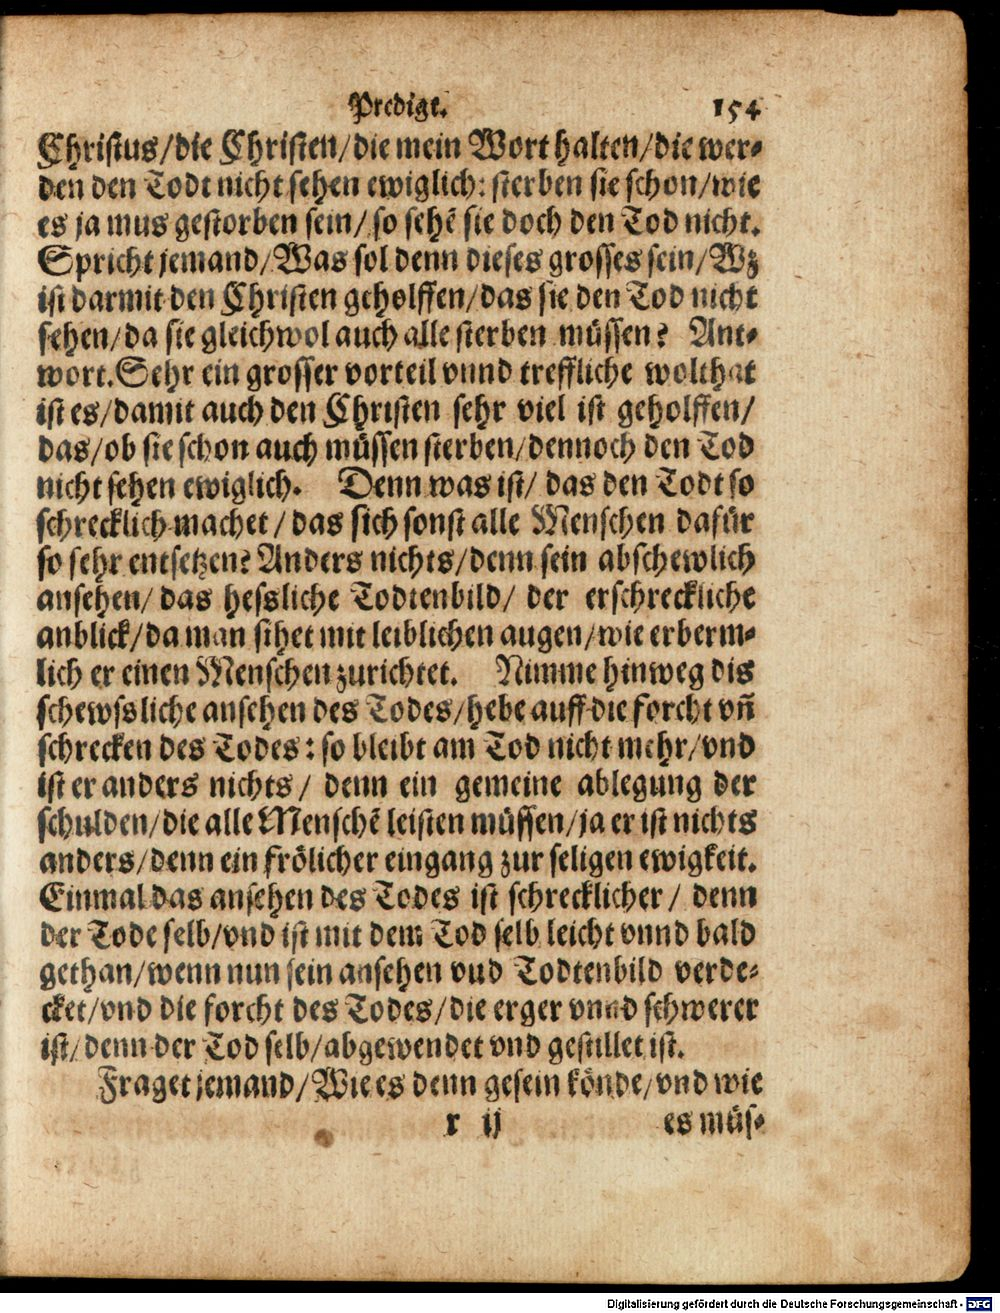 Predigt. 154
Christus/die Christen/die mein Wort halten/die wer-
den den Todt nicht sehen ewiglich: sterben sie schon/wie
es ja mus gestorben sein/so sehẽ sie doch den Tod nicht.
Spricht jemand/Was sol denn dieses grosses sein/Wz
ist darmit den Christen geholffen/das sie den Tod nicht
sehen/da sie gleichwol auch alle sterben müssen? Ant-
wort. Sehr ein grosser vorteil vnnd treffliche wolthat
ist es/damit auch den Christen sehr viel ist geholffen/
das/ob sie schon auch müssen sterben/dennoch den Tod
nicht sehen ewiglich. Denn was ist/ das den Todt so
schrecklich machet/das sich sonst alle Menschen dafür
so sehr entsetzen? Anders nichts/denn sein abschewlich
ansehen/ das hessliche Todtenbild/ der erschreckliche
anblick/da man sihet mit leiblichen augen/wie erberm-
lich er einen Menschen zurichtet. Nimme hinweg dis
schewsliche ansehen des Todes/hebe auff die forcht vñ
schrecken des Todes: so bleibt am Tod nicht mehr/vnd
ist er anders nichts/ denn ein gemeine ablegung der
schulden/die alle Menschẽ leisten müssen/ja er ist nichts
anders/denn ein frölicher eingang zur seligen ewigkeit.
Einmal das ansehen des Todes ist schrecklicher/ denn
der Tode selb/vnd ist mit dem Tod selb leicht vnnd bald
gethan/wenn nun sein ansehen vud Todtenbild verde-
cket/vnd die forcht des Todes/die erger vnnd schwerer
ist/denn der Tod selb/abgewendet vnd gestillet ist.
Fraget jemand/Wie es denn gesein könde/vnd wie
r ij es müs-
Digitalisierung gefördert durch die Deutsche Forschungsgemeinschaft - DFG